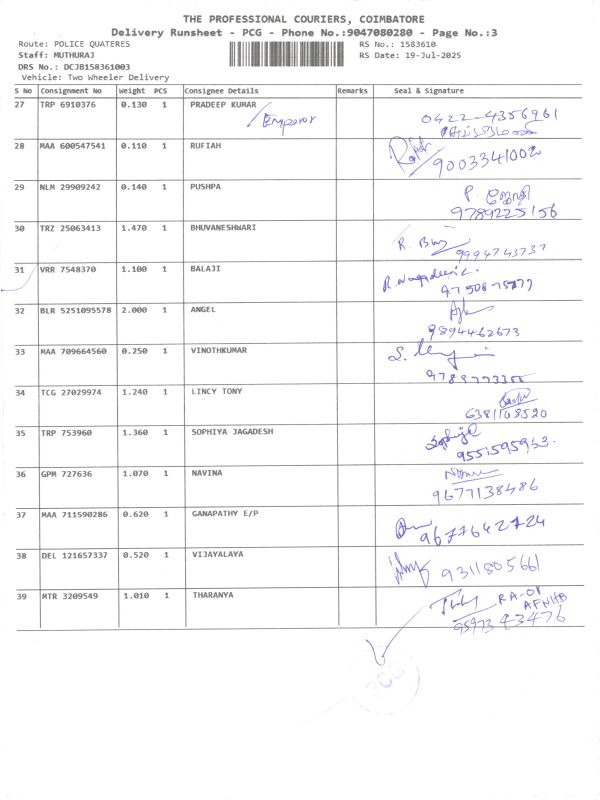 THE PROFESSIONAL COURIERS, COIMBATORE
Delivery Runsheet - PCG - Phone No.:9047080280 - Page No.:3
Route: POLICE QUATERES RS No.: 1583610
Staff: MUTHURAJ RS Date: 19-Jul-2025
DRS No.: DCJB158361003
Vehicle: Two Wheeler Delivery
S No Consignment No Weight PCS Consignee Details Remarks Seal & Signature
27 TRP 6910376 0.130 1 PRADEEP KUMAR 0422-4356961
Emperor
28 MAA 600547541 0.110 1 RUFIAH 9003341002
29 NLM 29909242 0.140 1 PUSHPA P.
9789225156
30 TRZ 25063413 1.470 1 BHUVANESHWARI R.
9994743737
31 VRR 7548370 1.100 1 BALAJI
32 BLR 5251095578 2.000 1 ANGEL
9894462673
33 MAA 709664560 0.250 1 VINOTHKUMAR S.
34 TCG 27029974 1.240 1 LINCY TONY
6381108520
35 TRP 753960 1.360 1 SOPHIYA JAGADESH Sophiya
9551595963
36 GPM 727636 1.070 1 NAVINA
9677138486
37 MAA 711590286 0.620 1 GANAPATHY E/P
9677642724
38 DEL 121657337 0.520 1 VIJAYALAYA
9311805661
39 MTR 3209549 1.010 1 THARANYA RA-01
AFNHB
9597343476
PCG